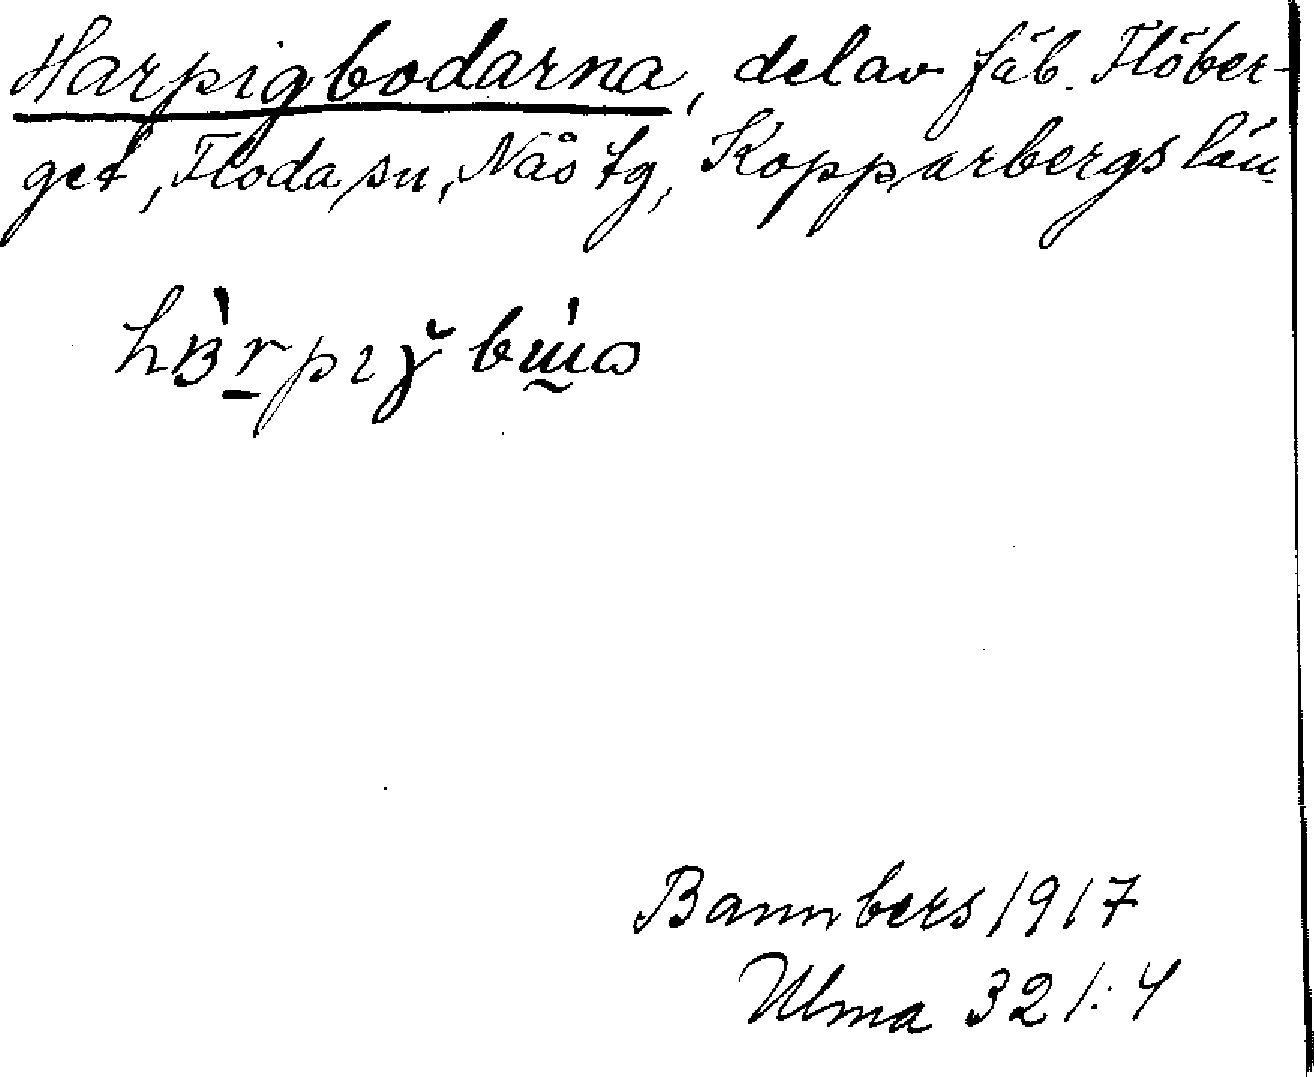 Harpigbodarna, del av fäb. Flöber-
get, Floda sn, Nås tg, Kopparbergs län.
Bannbers 1917
Ulma 321:4